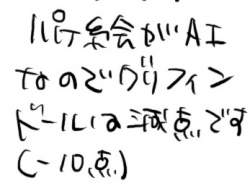 パケ絵がAI
なのでグリフィン
ドールは減点です
(-10点)